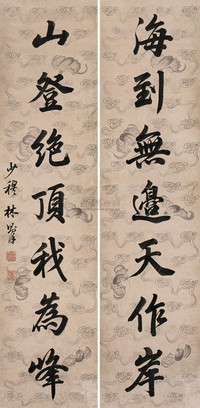 海到無邊天作岸
山登絕頂我為峰
少穆林則徐